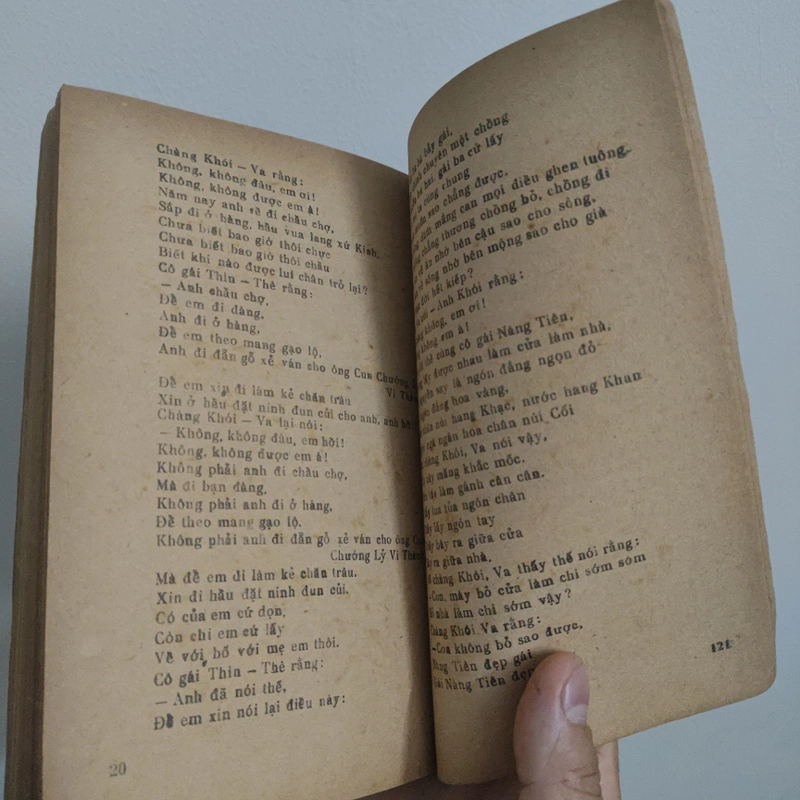 Chàng Khói — Va rằng:
Không, không đâu, em ơi!
Không, không được em à!
Năm nay anh sẽ đi chầu chợ,
Sắp đi ở hàng, hầu vua lang xứ Kinh.
Chưa biết bao giờ thôi chực
Chưa biết bao giờ thôi chầu
Biết khi nào được lui chân trở lại?
Cô gái Thin — Thẻ rằng:
— Anh chầu chợ,
Đề em đi dàng,
Anh đi ở hàng,
Đề em theo mang gạo lộ,
Anh đi đẵn gỗ xẻ ván cho ông Cun Chưởng,
Đề em xin đi làm kẻ chăn trâu
Xin ở hầu đặt ninh đun củi cho anh, anh
Chàng Khói — Va lại nói:
— Không, không đâu, em hời!
Không, không được em à!
Không phải anh đi chầu chợ,
Mà đi bạn dàng,
Không phải anh đi ở hàng,
Đề theo mang gạo lộ.
Không phải anh đi đẵn gỗ xẻ ván cho ông
Chưởng Lỷ Vi
Mà đề em đi làm kẻ chăn trâu.
Xin đi hầu đặt ninh đun củi.
Có của em cứ dọn,
Còn chi em cứ lấy
Về với bố với mẹ em thôi.
Cô gái Thin — Thẻ rằng:
— Anh đã nói thế,
Đề em xin nói lại điều này:
20
bảy gái,
chuyên một chồng
hai, gái ba cứ lấy
cùng chung
sao chẳng được,
mắng can mọi điều ghen tuông.
chẳng thương chồng bỏ, chồng đi
ăn nhờ bên cậu sao cho sống,
sống nhờ bên mộng sao cho già
đời hết kiếp?
— Anh Khói rằng:
không, em ơi!
không em à!
thề cùng cô gái Nàng Tiên,
lấy được nhau làm cửa làm nhà,
say lá ngón đắng ngọn đỏ
đắng hoa vàng,
hang Khạc, nước hang Khan
ngăn hoa chân núi Cối
chàng Khói, Va nói vậy,
mắng khắc mốc.
làm gánh càn cân.
lụa tùa ngón chân
lấy ngón tay
bảy ra giữa cửa
ra giữa nhà.
chàng Khói, Va thấy thế nói rằng:
—Con, mày bỏ cửa làm chi sớm sớm
nhà làm chi sớm vậy?
Chàng Khói Va rằng:
—Con không bỏ sao được,
Nàng Tiên đẹp gái
Gái Nàng Tiên đẹp
121